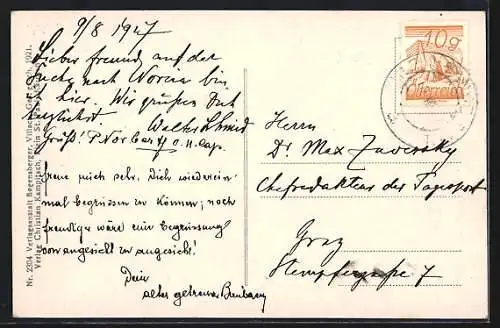 9/8 1927
Lieber Freund, auf der
Suche nach Noreia bin
i. hier. Wir grüßen Dich
herzlichst. Walter Schmid
Gruß! P. Norbert O.M.Cap.
Freue mich sehr, Dich wiederein-
mal begrüssen zu können; noch
freudiger wäre ein Begrüssung
von angesicht zu angesicht!
Dein
alter getreuer
Nr. 2204 Verlagsanstalt Regensberger, Villach. Ges. gesch. 1921.
Verlag Christian Kampitsch, St.
10g
Österreich
Herrn
Dr. Max Zaversky
Chefredakteur der Tagespost
Graz
Stempfergasse 7